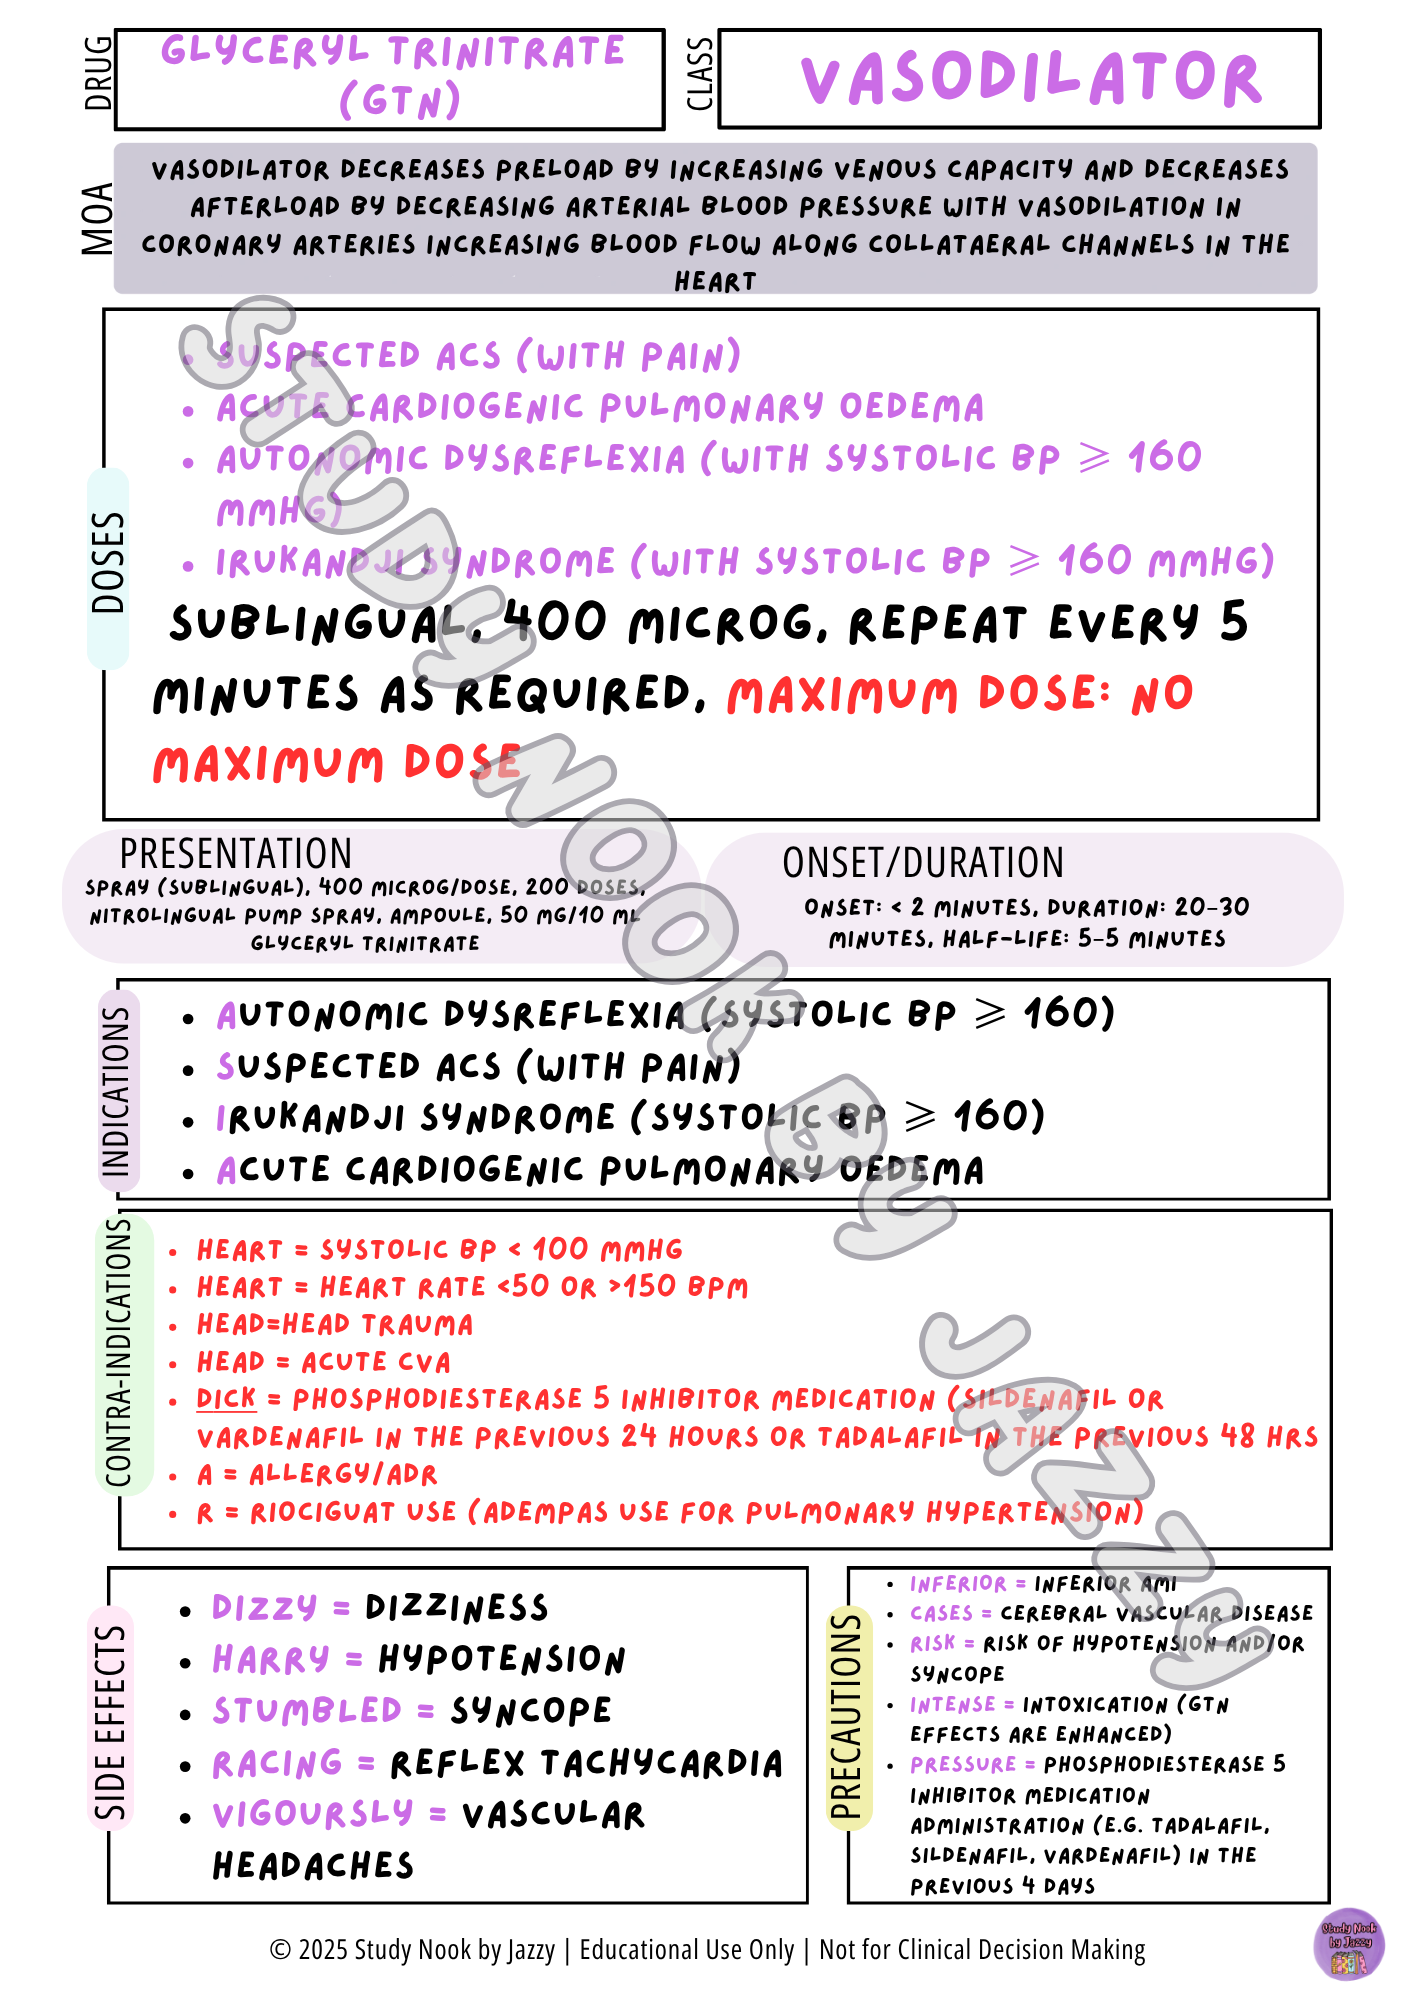 DRUG
GLYCERYL TRINITRATE
(GTN)
CLASS
VASODILATOR
MOA
VASODILATOR DECREASES PRELOAD BY INCREASING VENOUS CAPACITY AND DECREASES
AFTERLOAD BY DECREASING ARTERIAL BLOOD PRESSURE WITH VASODILATION IN
CORONARY ARTERIES INCREASING BLOOD FLOW ALONG COLLATAERAL CHANNELS IN THE
HEART
DOSES
• SUSPECTED ACS (WITH PAIN)
• ACUTE CARDIOGENIC PULMONARY OEDEMA
• AUTONOMIC DYSREFLEXIA (WITH SYSTOLIC BP ⩾ 160
MMHG)
• IRUKANDJI SYNDROME (WITH SYSTOLIC BP ⩾ 160 MMHG)
SUBLINGUAL, 400 MICROG, REPEAT EVERY 5
MINUTES AS REQUIRED, MAXIMUM DOSE: NO
MAXIMUM DOSE
PRESENTATION
SPRAY (SUBLINGUAL), 400 MICROG/DOSE, 200 DOSES,
NITROLINGUAL PUMP SPRAY, AMPOULE, 50 MG/10 ML
GLYCERYL TRINITRATE
ONSET/DURATION
ONSET: < 2 MINUTES, DURATION: 20–30
MINUTES, HALF-LIFE: 5–5 MINUTES
INDICATIONS
• AUTONOMIC DYSREFLEXIA (SYSTOLIC BP ⩾ 160)
• SUSPECTED ACS (WITH PAIN)
• IRUKANDJI SYNDROME (SYSTOLIC BP ⩾ 160)
• ACUTE CARDIOGENIC PULMONARY OEDEMA
CONTRA-INDICATIONS
• HEART = SYSTOLIC BP < 100 MMHG
• HEART = HEART RATE <50 OR >150 BPM
• HEAD=HEAD TRAUMA
• HEAD = ACUTE CVA
• DICK = PHOSPHODIESTERASE 5 INHIBITOR MEDICATION (SILDENAFIL OR
VARDENAFIL IN THE PREVIOUS 24 HOURS OR TADALAFIL IN THE PREVIOUS 48 HRS
• A = ALLERGY/ADR
• R = RIOCIGUAT USE (ADEMPAS USE FOR PULMONARY HYPERTENSION)
SIDE EFFECTS
• DIZZY = DIZZINESS
• HARRY = HYPOTENSION
• STUMBLED = SYNCOPE
• RACING = REFLEX TACHYCARDIA
• VIGOURSLY = VASCULAR
HEADACHES
PRECAUTIONS
• INFERIOR = INFERIOR AMI
• CASES = CEREBRAL VASCULAR DISEASE
• RISK = RISK OF HYPOTENSION AND/OR
SYNCOPE
• INTENSE = INTOXICATION (GTN
EFFECTS ARE ENHANCED)
• PRESSURE = PHOSPHODIESTERASE 5
INHIBITOR MEDICATION
ADMINISTRATION (E.G. TADALAFIL,
SILDENAFIL, VARDENAFIL) IN THE
PREVIOUS 4 DAYS
STUDY NOOK BY JAZZY
© 2025 Study Nook by Jazzy | Educational Use Only | Not for Clinical Decision Making
Study Nook
by Jazzy